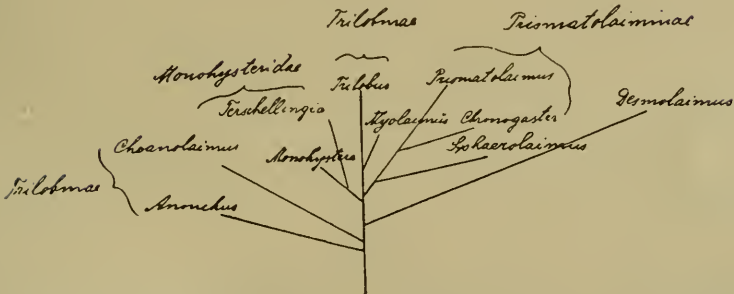 Trilobinae Prismatolaiminae
Monohysteridae Trilobus Prismatolaimus
Terschellingia Desmolaimus
Choanolaimus Monohystera Myolaimus Chronogaster
Sphaerolaimus
Trilobinae
Anonchus